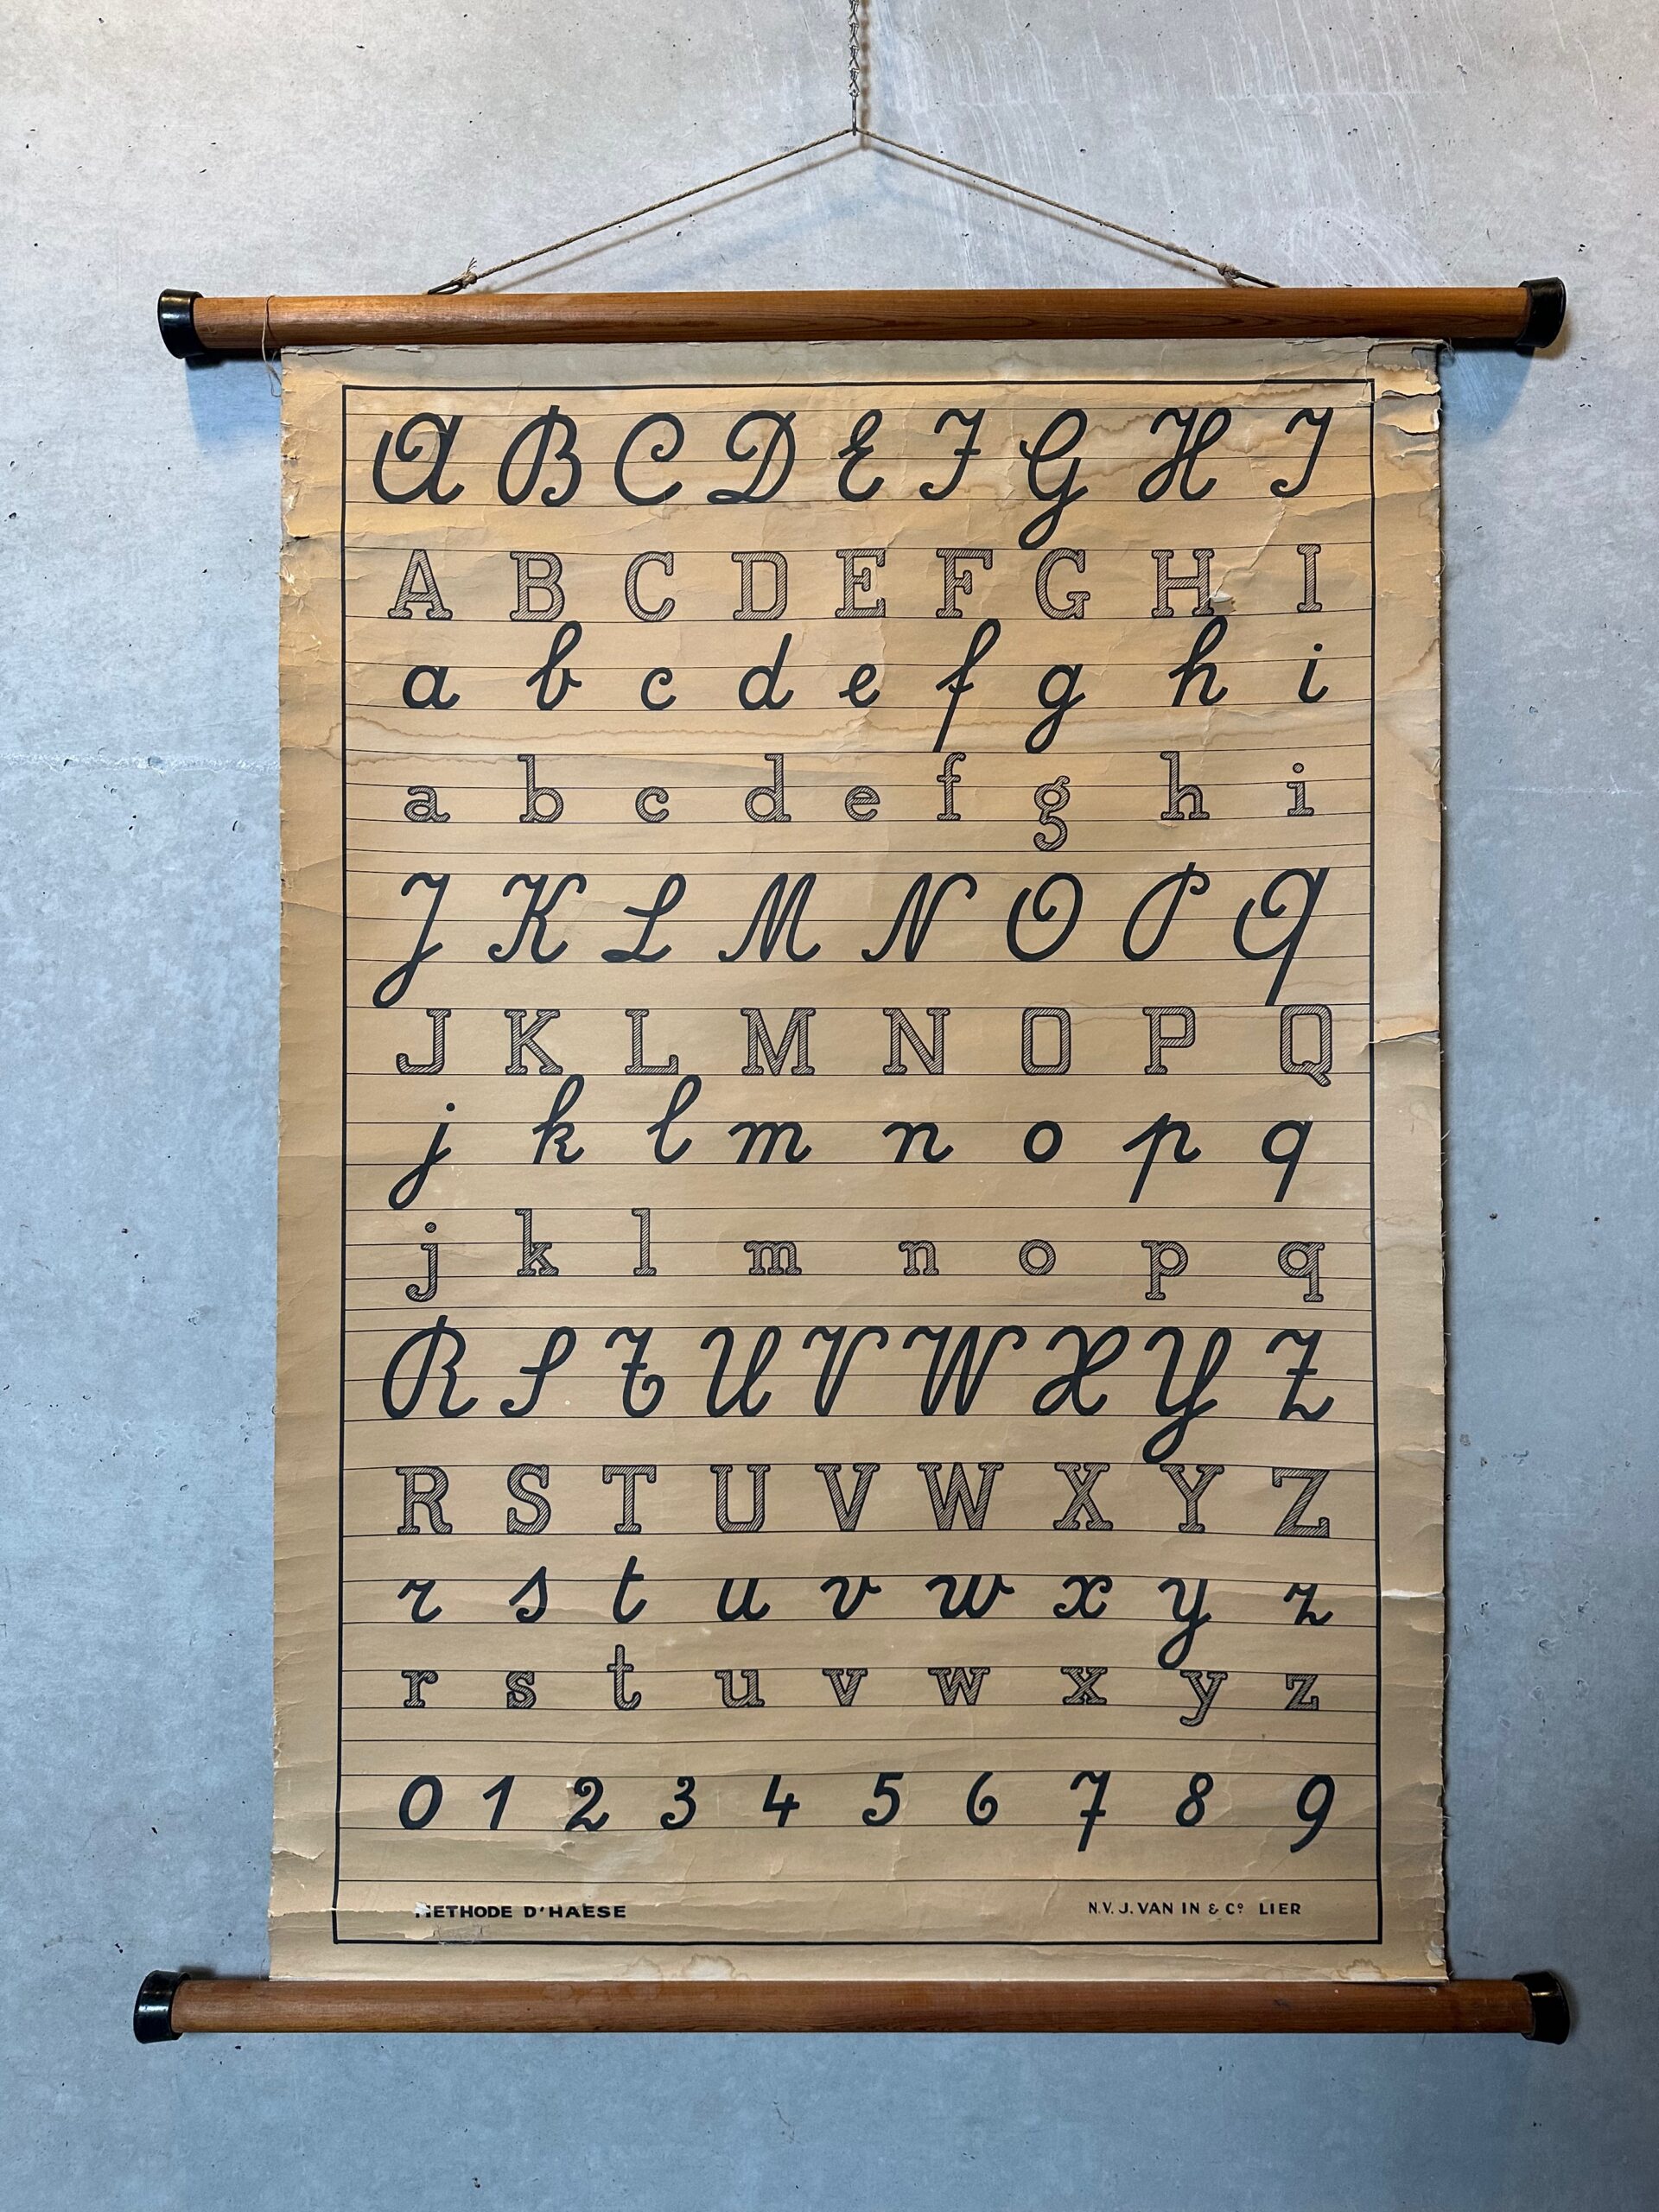 A B C D E F G H I
A B C D E F G H I
a b c d e f g h i
a b c d e f g h i
J K L M N O P Q
J K L M N O P Q
j k l m n o p q
j k l m n o p q
R S T U V W X Y Z
R S T U V W X Y Z
r s t u v w x y z
r s t u v w x y z
0 1 2 3 4 5 6 7 8 9
METHODE D'HAESE
N.V. J. VAN IN & Cº LIER